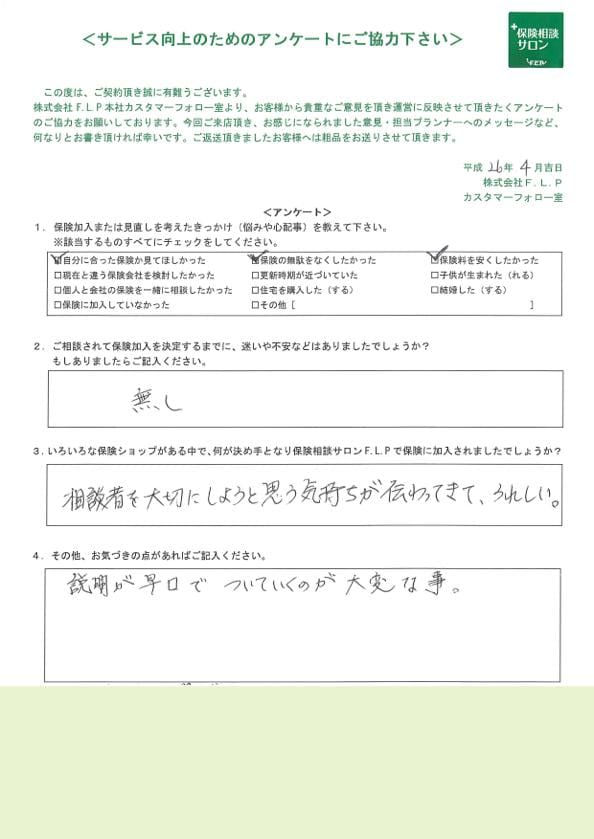 ＜サービス向上のためのアンケートにご協力下さい＞
保険相談
サロン
F.L.P
この度は、ご契約頂き誠に有難うございます。
株式会社F.L.P本社カスタマーフォロー室より、お客様から貴重なご意見を頂き運営に反映させて頂きたくアンケート
のご協力をお願いしております。今回ご来店頂き、お感じになられました意見・担当プランナーへのメッセージなど、
何なりとお書き頂ければ幸いです。ご返送頂きましたお客様へは粗品をお送りさせて頂きます。
平成 26年 4月吉日
株式会社F.L.P
カスタマーフォロー室
＜アンケート＞
1．保険加入または見直しを考えたきっかけ（悩みや心配事）を教えて下さい。
※該当するものすべてにチェックをしてください。
☑自分に合った保険か見てほしかった ☑保険の無駄をなくしたかった ☑保険料を安くしたかった
□現在と違う保険会社を検討したかった □更新時期が近づいていた □子供が生まれた（れる）
□個人と会社の保険を一緒に相談したかった □住宅を購入した（する） □結婚した（する）
□保険に加入していなかった □その他［ ］
2．ご相談されて保険加入を決定するまでに、迷いや不安などはありましたでしょうか？
もしありましたらご記入ください。
無し
3．いろいろな保険ショップがある中で、何が決め手となり保険相談サロンF.L.Pで保険に加入されましたでしょうか？
相談者を大切にしようと思う気持ちが伝わってきて、うれしい。
4．その他、お気づきの点があればご記入ください。
説明が早口で ついていくのが大変な事。